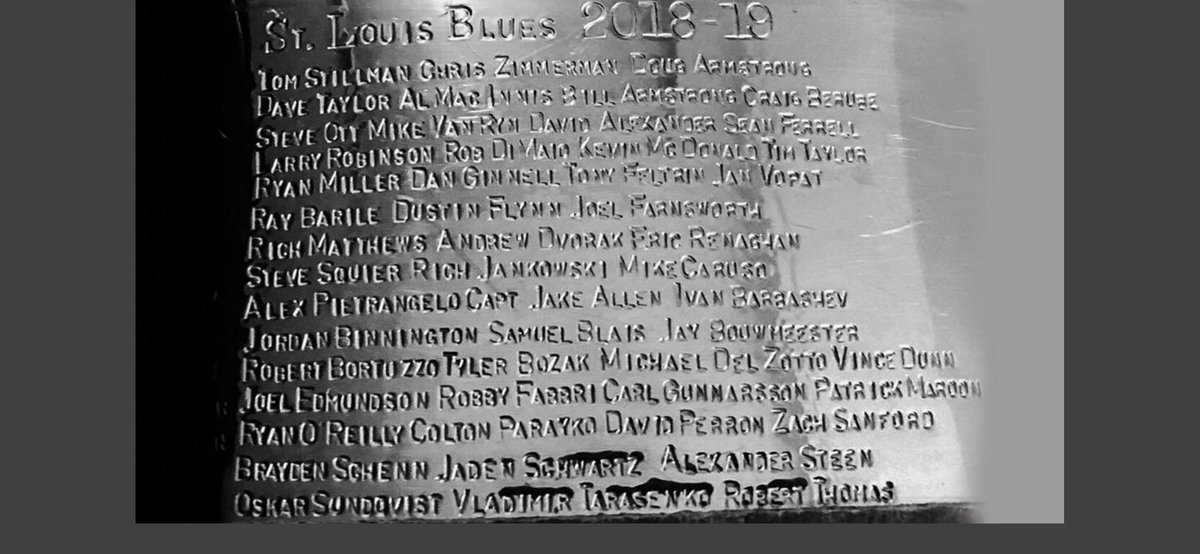 ST. LOUIS BLUES 2018-19
TOM STILLMAN CHRIS ZIMMERMAN DOUG ARMSTRONG
DAVE TAYLOR AL MAC INNIS BILL ARMSTRONG CRAIG BERUBE
STEVE OTT MIKE VAN RYN DAVID ALEXANDER SEAN FERRELL
LARRY ROBINSON ROB DI MAIO KEVIN MC DONALD TIM TAYLOR
RYAN MILLER DAN GINNELL TONY FELTRIN JAN VOPAT
RAY BARILE DUSTIN FLYNN JOEL FARNSWORTH
RICH MATTHEWS ANDREW DVORAK ERIC RENAGHAN
STEVE SQUIER RICH JANKOWSKI MIKE CARUSO
ALEX PIETRANGELO CAPT JAKE ALLEN IVAN BARBASHEV
JORDAN BINNINGTON SAMUEL BLAIS JAY BOUWMEESTER
ROBERT BORTUZZO TYLER BOZAK MICHAEL DEL ZOTTO VINCE DUNN
JOEL EDMUNDSON ROBBY FABBRI CARL GUNNARSSON PATRICK MAROON
RYAN O REILLY COLTON PARAYKO DAVID PERRON ZACH SANFORD
BRAYDEN SCHENN JADEN SCHWARTZ ALEXANDER STEEN
OSKAR SUNDQVIST VLADIMIR TARASENKO ROBERT THOMAS